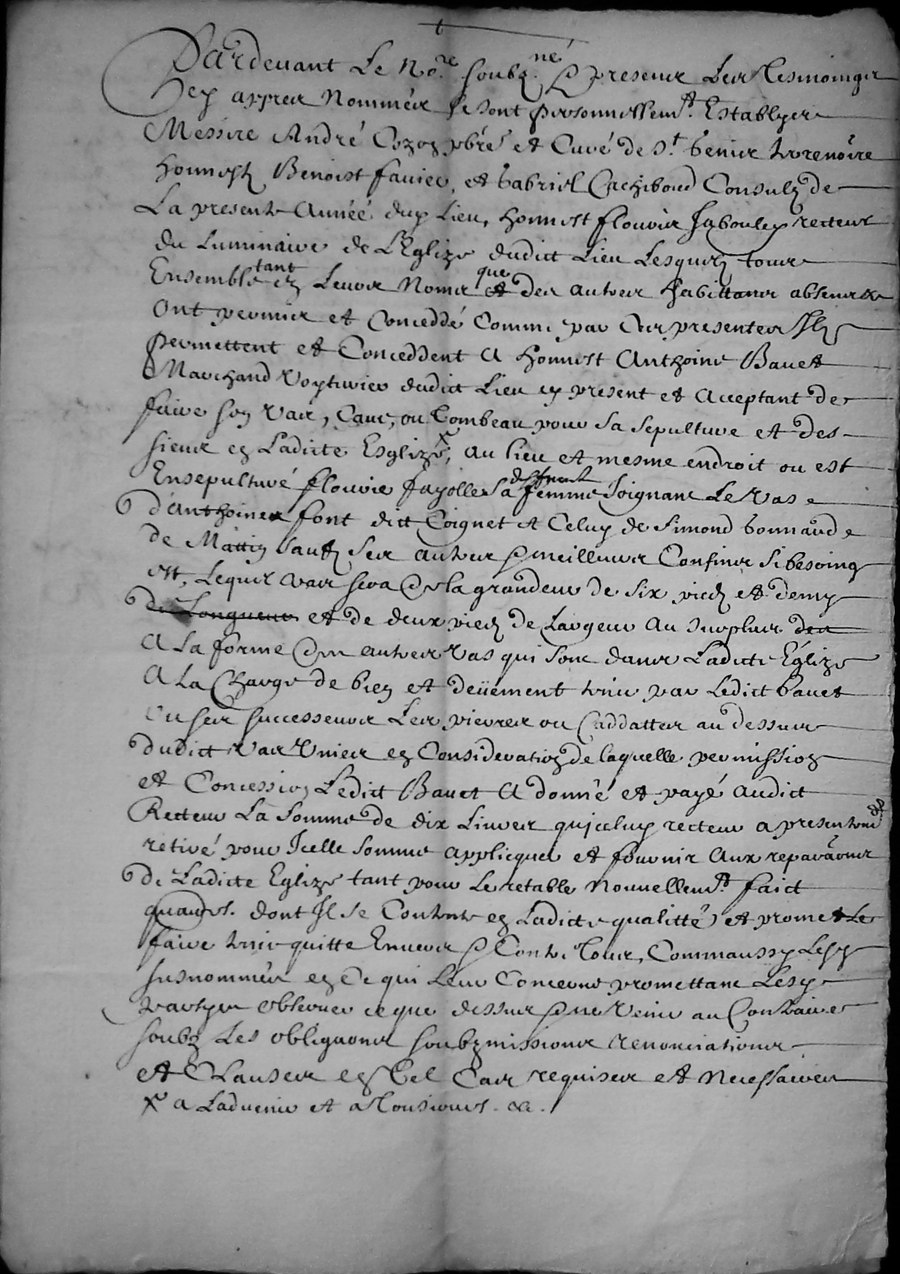 Pardevant Le No.re soubz.né & presence Les tesmoings
cy appres Nommés se sont personnellem.t Establyes
Messire André Cozon pbre et Curé de St genier terrenoire
honneste Benoist favier, et gabriel Cachiboud Consulz de
La presente Année dup Lieu, honnest flourir Jabouley recteur
du Luminaire de L'Eglize dudict Lieu Lesquelz tous
Ensemble tant en Leurs Noms que des autres habittants absens &
Ont permis et Conceddé Comme par Ces presentes Ilz
permettent et Conceddent A honnest Anthoine Bauet
Marchand Voyturier dudict Lieu cy present et Acceptant de
faire son Vas, Caue, ou Tombeau pour Sa Sepulture et des
siens en Ladicte Esglize, + au lieu et mesme endroit ou est
Ensepulturé flourie fayolle sa deffunte femme Joignant Le Vas
d'Anthoine font dict Coignet et Celuy de Simond bonnard
de Mattin sauf ses autres & meilleurs Confins si besoing
est, Lequel vas sera de la grandeur de six pieds et demy
de Longueur et de deux pieds de Largeur Au surplus
A La forme des autres Vas qui sont dans Ladicte Églize
A La Charge de bien et deüement tenir par Ledict bauet
Ou ses successeurs Les pierres ou Caddattes au dessus
dudict Vas Unies en Consideration de laquelle permission
et Concession Ledict Bauet A donné et payé audict
Recteur La Somme de dix Liures qu'iceluy recteur a presentem.t
retiré pour Icelle somme applicquer et fournir aux reparaons
de Ladicte Eglize tant pour Le retable Nouuellem.t faict
quautres. dont Il se Contente en Ladicte qualitté, et promet Le
faire tenir quitte Enuers & Contre Tous, Comm'aussy Lesd
susnommés en Ce qui Leur Concerne promettant Lesd
partyes obseruer ce que dessus & ne Venir au Contraire
soubz Les obligaons soubzmissions renonciations
et Clauses en tel Cas requises et Necessaires
+ a Laduenir et a tousiours. &c.